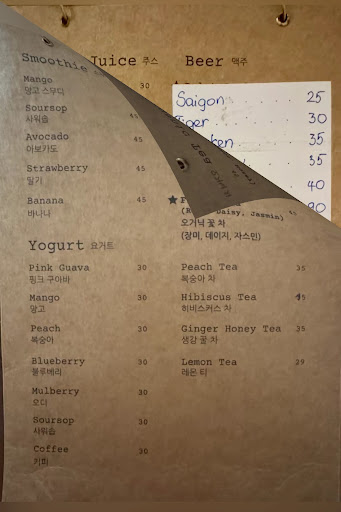 Smoothie
Mango
망고 스무디
Soursop
사워솝
45
Avocado
아보카도
45
Strawberry
딸기
45
Banana
바나나
45
Yogurt 요거트
Pink Guava 30
핑크 구아바
Mango 30
망고
Peach 30
복숭아
Blueberry 30
블루베리
Mulberry 30
오디
Soursop 30
사워솝
Coffee 30
커피
Juice 주스
30
Beer 맥주
Saigon 25
Tiger 30
35
35
40
90
Daisy, Jasmin) 45
오가닉 꽃 차
(장미, 데이지, 자스민)
Peach Tea 35
복숭아 차
Hibiscus Tea 45
히비스커스 차
Ginger Honey Tea 35
생강 꿀 차
Lemon Tea 29
레몬 티